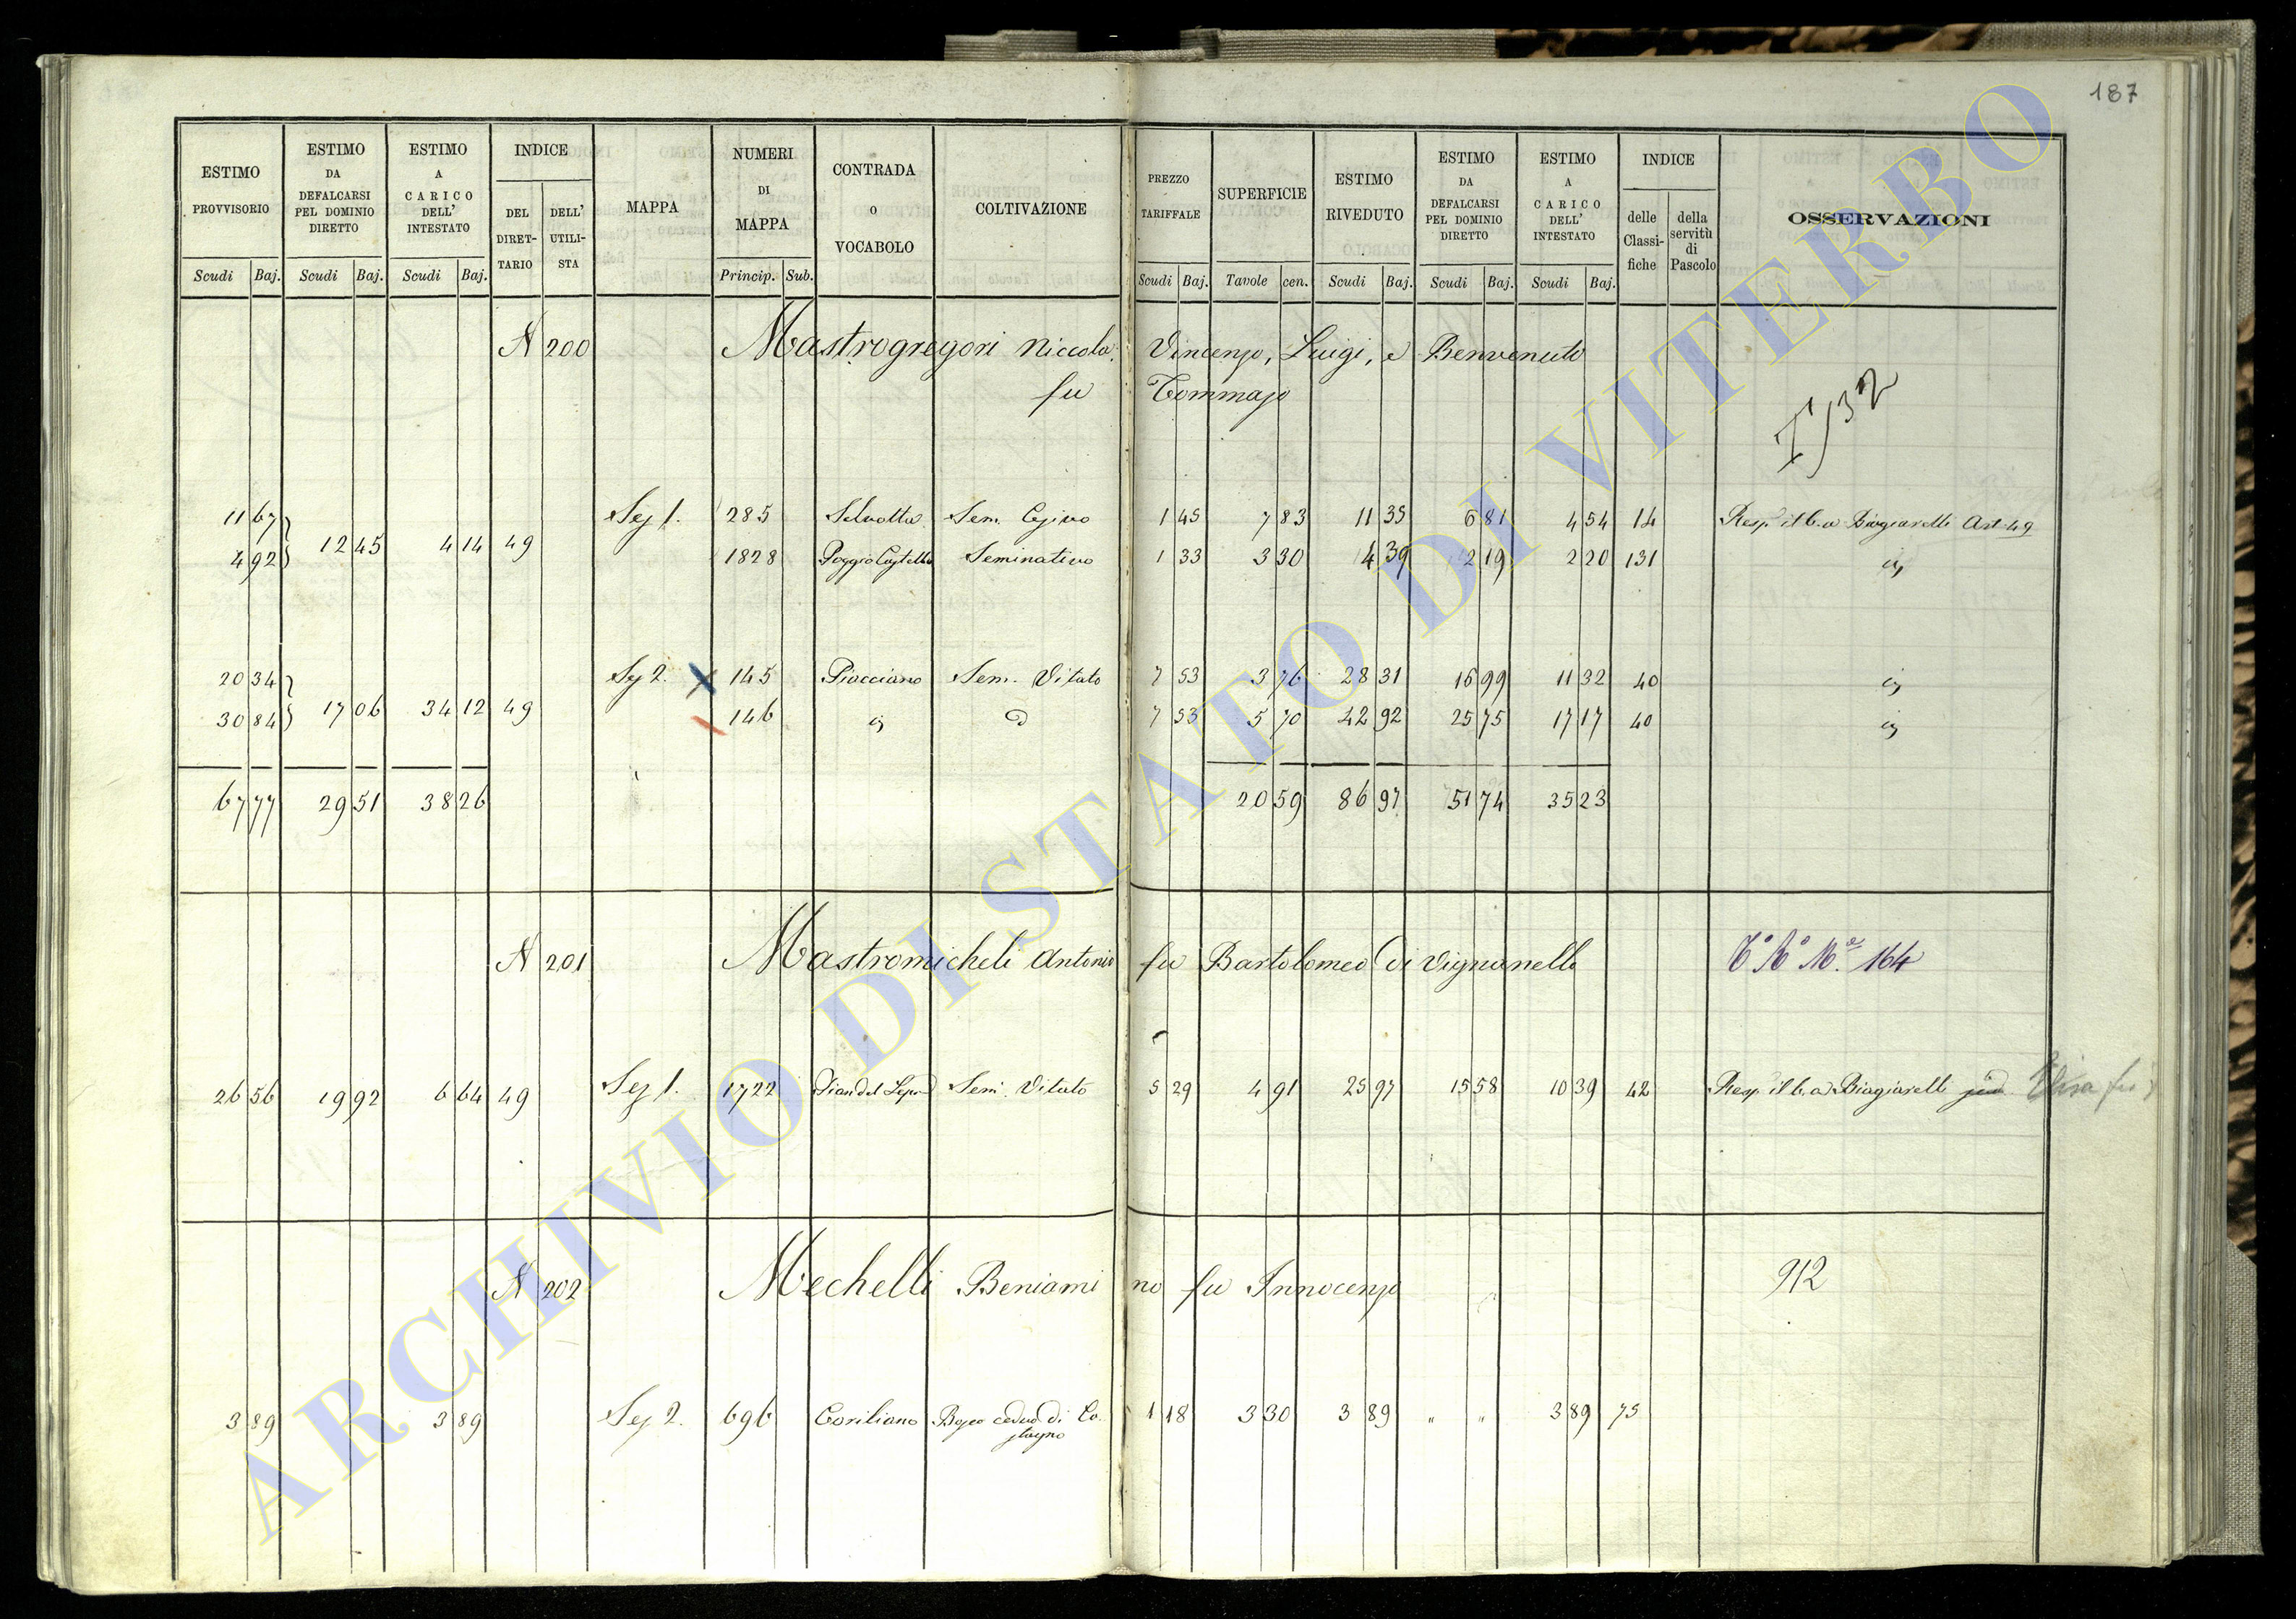 187
ESTIMO PROVVISORIO Scudi Baj. ESTIMO DA DEFALCARSI PEL DOMINIO DIRETTO Scudi Baj. ESTIMO A CARICO DELL' INTESTATO Scudi Baj. INDICE DEL DIRET-TARIO DELL' UTILI-STA MAPPA NUMERI DI MAPPA Princip. Sub. CONTRADA o VOCABOLO COLTIVAZIONE PREZZO TARIFFALE Scudi Baj. SUPERFICIE Tavole cen. ESTIMO RIVEDUTO Scudi Baj. ESTIMO DA DEFALCARSI PEL DOMINIO DIRETTO Scudi Baj. ESTIMO A CARICO DELL' INTESTATO Scudi Baj. INDICE delle Classi-fiche della servitù di Pascolo OSSERVAZIONI
N 200 Mastrogregori Niccola, Vincenzo, Luigi, e Benvenuto
fu Tommaso
11 67 Sez 1. 285 Selvotta Sem. 1 45 7 83 11 35 6 81 4 54 14 Resp. il b. a Biagiarelli Art. 49
4 92 12 45 4 14 49 1828 Poggio Castello Seminativo 1 33 3 30 4 39 2 19 2 20 131 id
20 34 Sez 2. 145 Piacciano Sem. Vitato 7 53 3 76 28 31 16 99 11 32 40 id
30 84 17 06 34 12 49 146 id id 7 53 5 70 42 92 25 75 17 17 40 id
67 77 29 51 38 26 20 59 86 97 51 74 35 23
N 201 Mastromicheli Antonio fu Bartolomeo di Vignanello 164
26 56 19 92 6 64 49 Sez 1. 1722 Sem. Vitato 5 29 4 91 25 97 15 58 10 39 42 Resp. il b. a Biagiarelli Elisa fu
N 202 Mechelli Beniamino fu Innocenzo 912
3 89 3 89 Sez 2. 696 Coriliano Bosco ceduo di Ca-
stagno 1 18 3 30 3 89 " " 3 89 75
ARCHIVIO DI STATO DI VITERBO